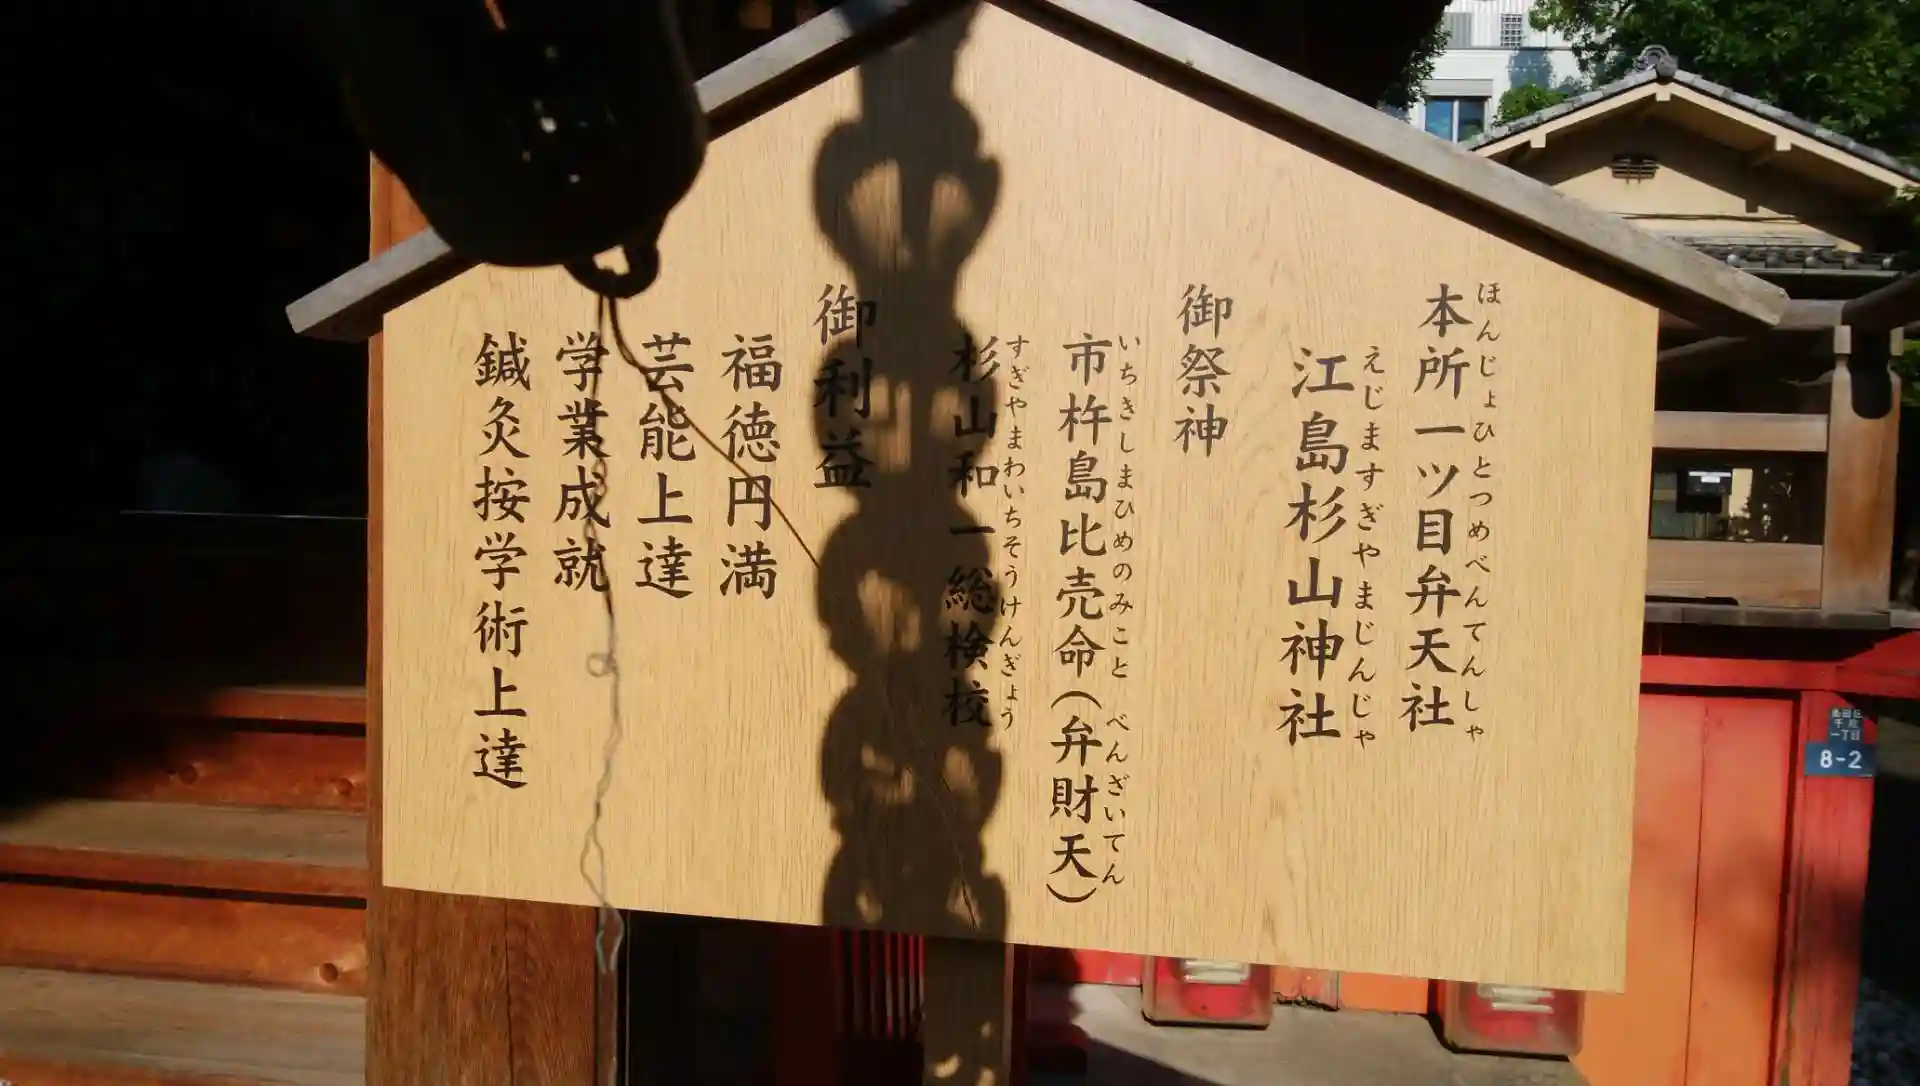 本所一ツ目弁天社
ほんじょひとつめべんてんしゃ
江島杉山神社
えじますぎやまじんじゃ
御祭神
市杵島比売命（弁財天）
いちきしまひめのみこと べんざいてん
杉山和一総検校
すぎやまわいちそうけんぎょう
御利益
福徳円満
芸能上達
学業成就
鍼灸按学術上達
墨田区
千歳
一丁目
8-2